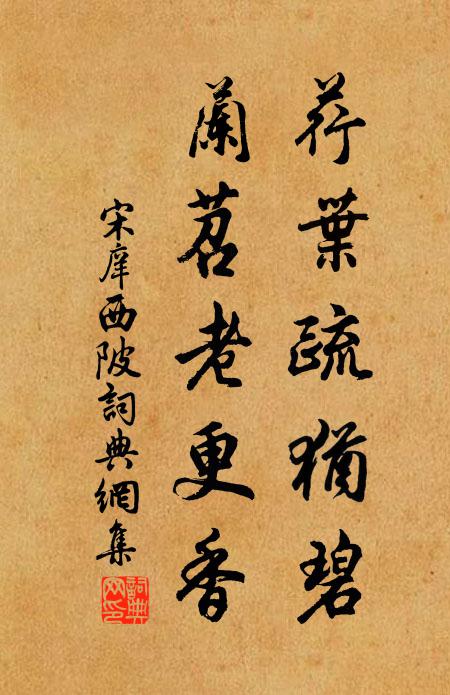 荇葉疏猶碧
蘭苕老更香
宋庠西陂詞典網集
詞典
网印